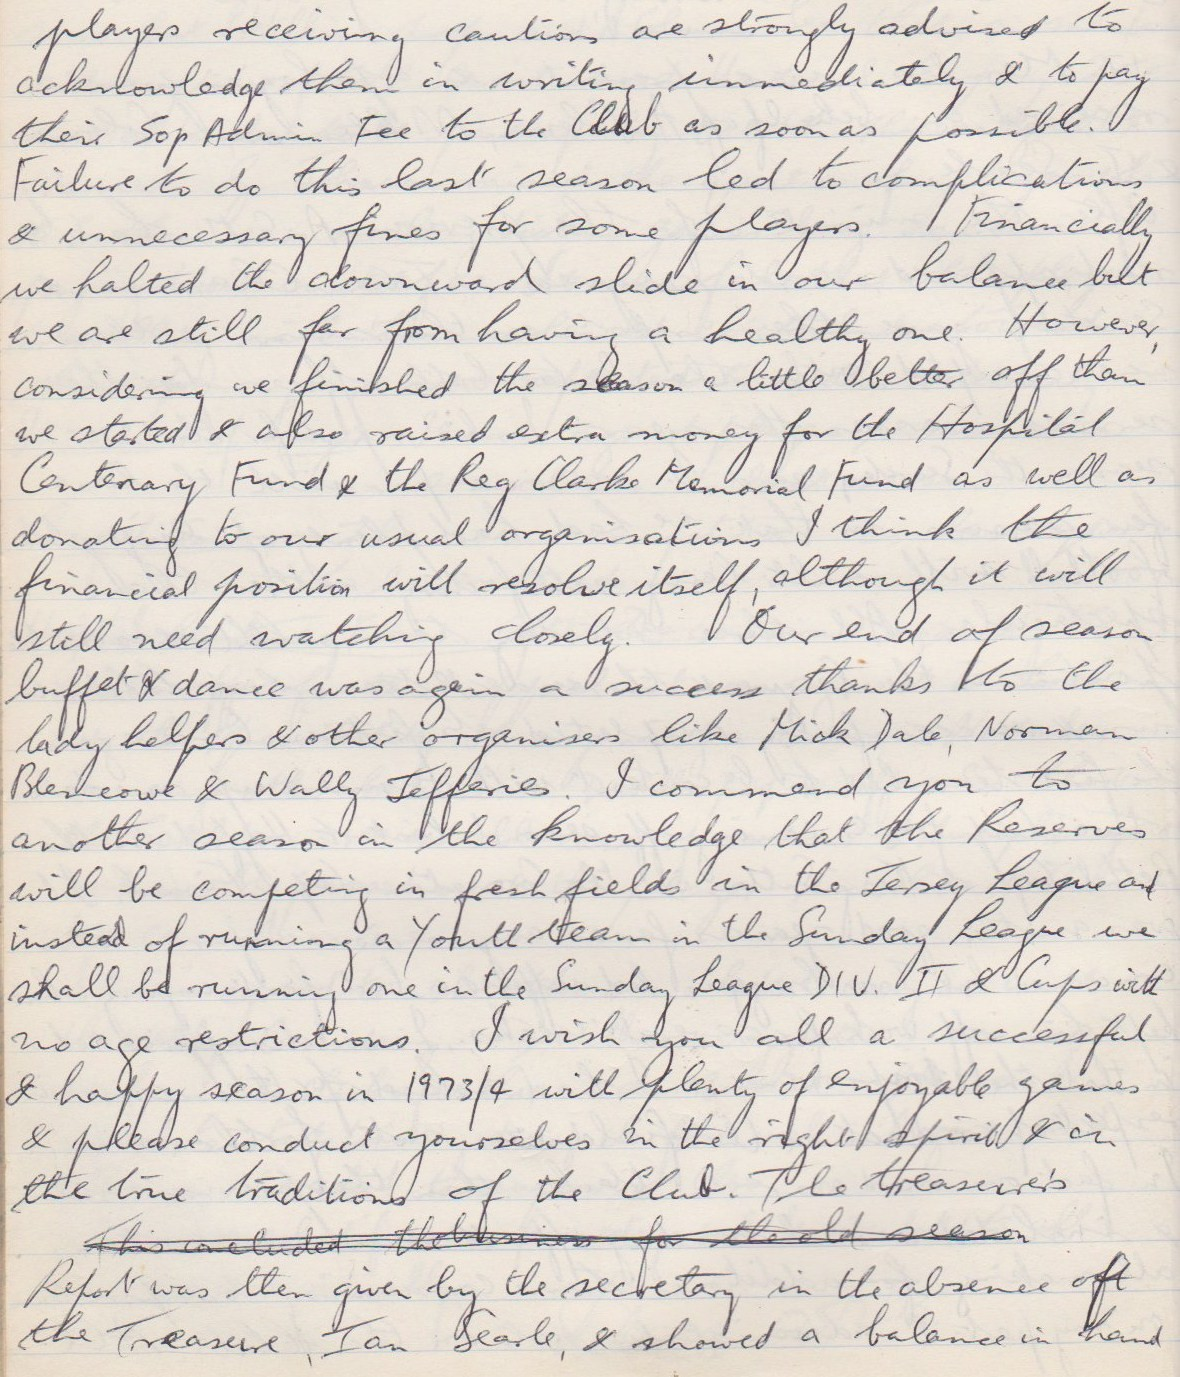 players receiving cautions are strongly advised to
acknowledge them in writing immediately & to pay
their 50p Admin Fee to the Club as soon as possible.
Failure to do this last season led to complications
& unnecessary fines for some players. Financially
we halted the downward slide in our balance but
we are still far from having a healthy one. However,
considering we finished the season a little better off than
we started & also raised extra money for the Hospital
Centenary Fund & the Reg Clarke Memorial Fund as well as
donating to our usual organisations I think the
financial position will resolve itself, although it will
still need watching closely. Our end of season
buffet & dance was again a success thanks to the
lady helpers & other organisers like Mick Dale, Norman
Blencowe & Wally Jefferies. I commend you to
another season in the knowledge that the Reserves
will be competing in fresh fields in the Jersey League and
instead of running a Youth team in the Sunday League we
shall be running one in the Sunday League DIV. II & Cups with
no age restrictions. I wish you all a successful
& happy season in 1973/4 with plenty of enjoyable games
& please conduct yourselves in the right spirit & in
the true traditions of the Club. The treasurer's
This concluded the business for the old season
Report was then given by the secretary in the absence of
the Treasure, Ian Searle, & showed a balance in hand